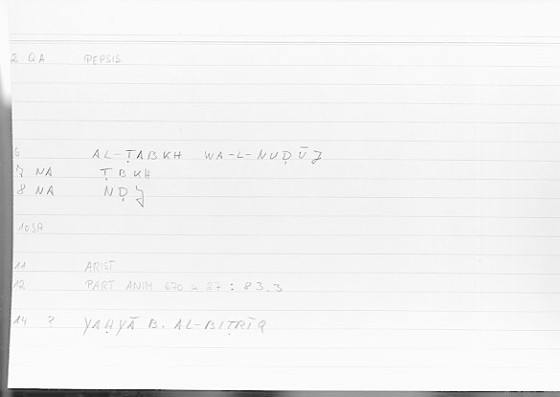 2 QA PEPSIS
6 AL-ṬABKH WA-L-NUḌŪJ
7 NA ṬBKH
8 NA NḌJ
10 SA
11 ARIST
12 PART ANIM 670 a 27 : 83.3
14 2 YAḤYĀ B. AL-BIṬRĪQ